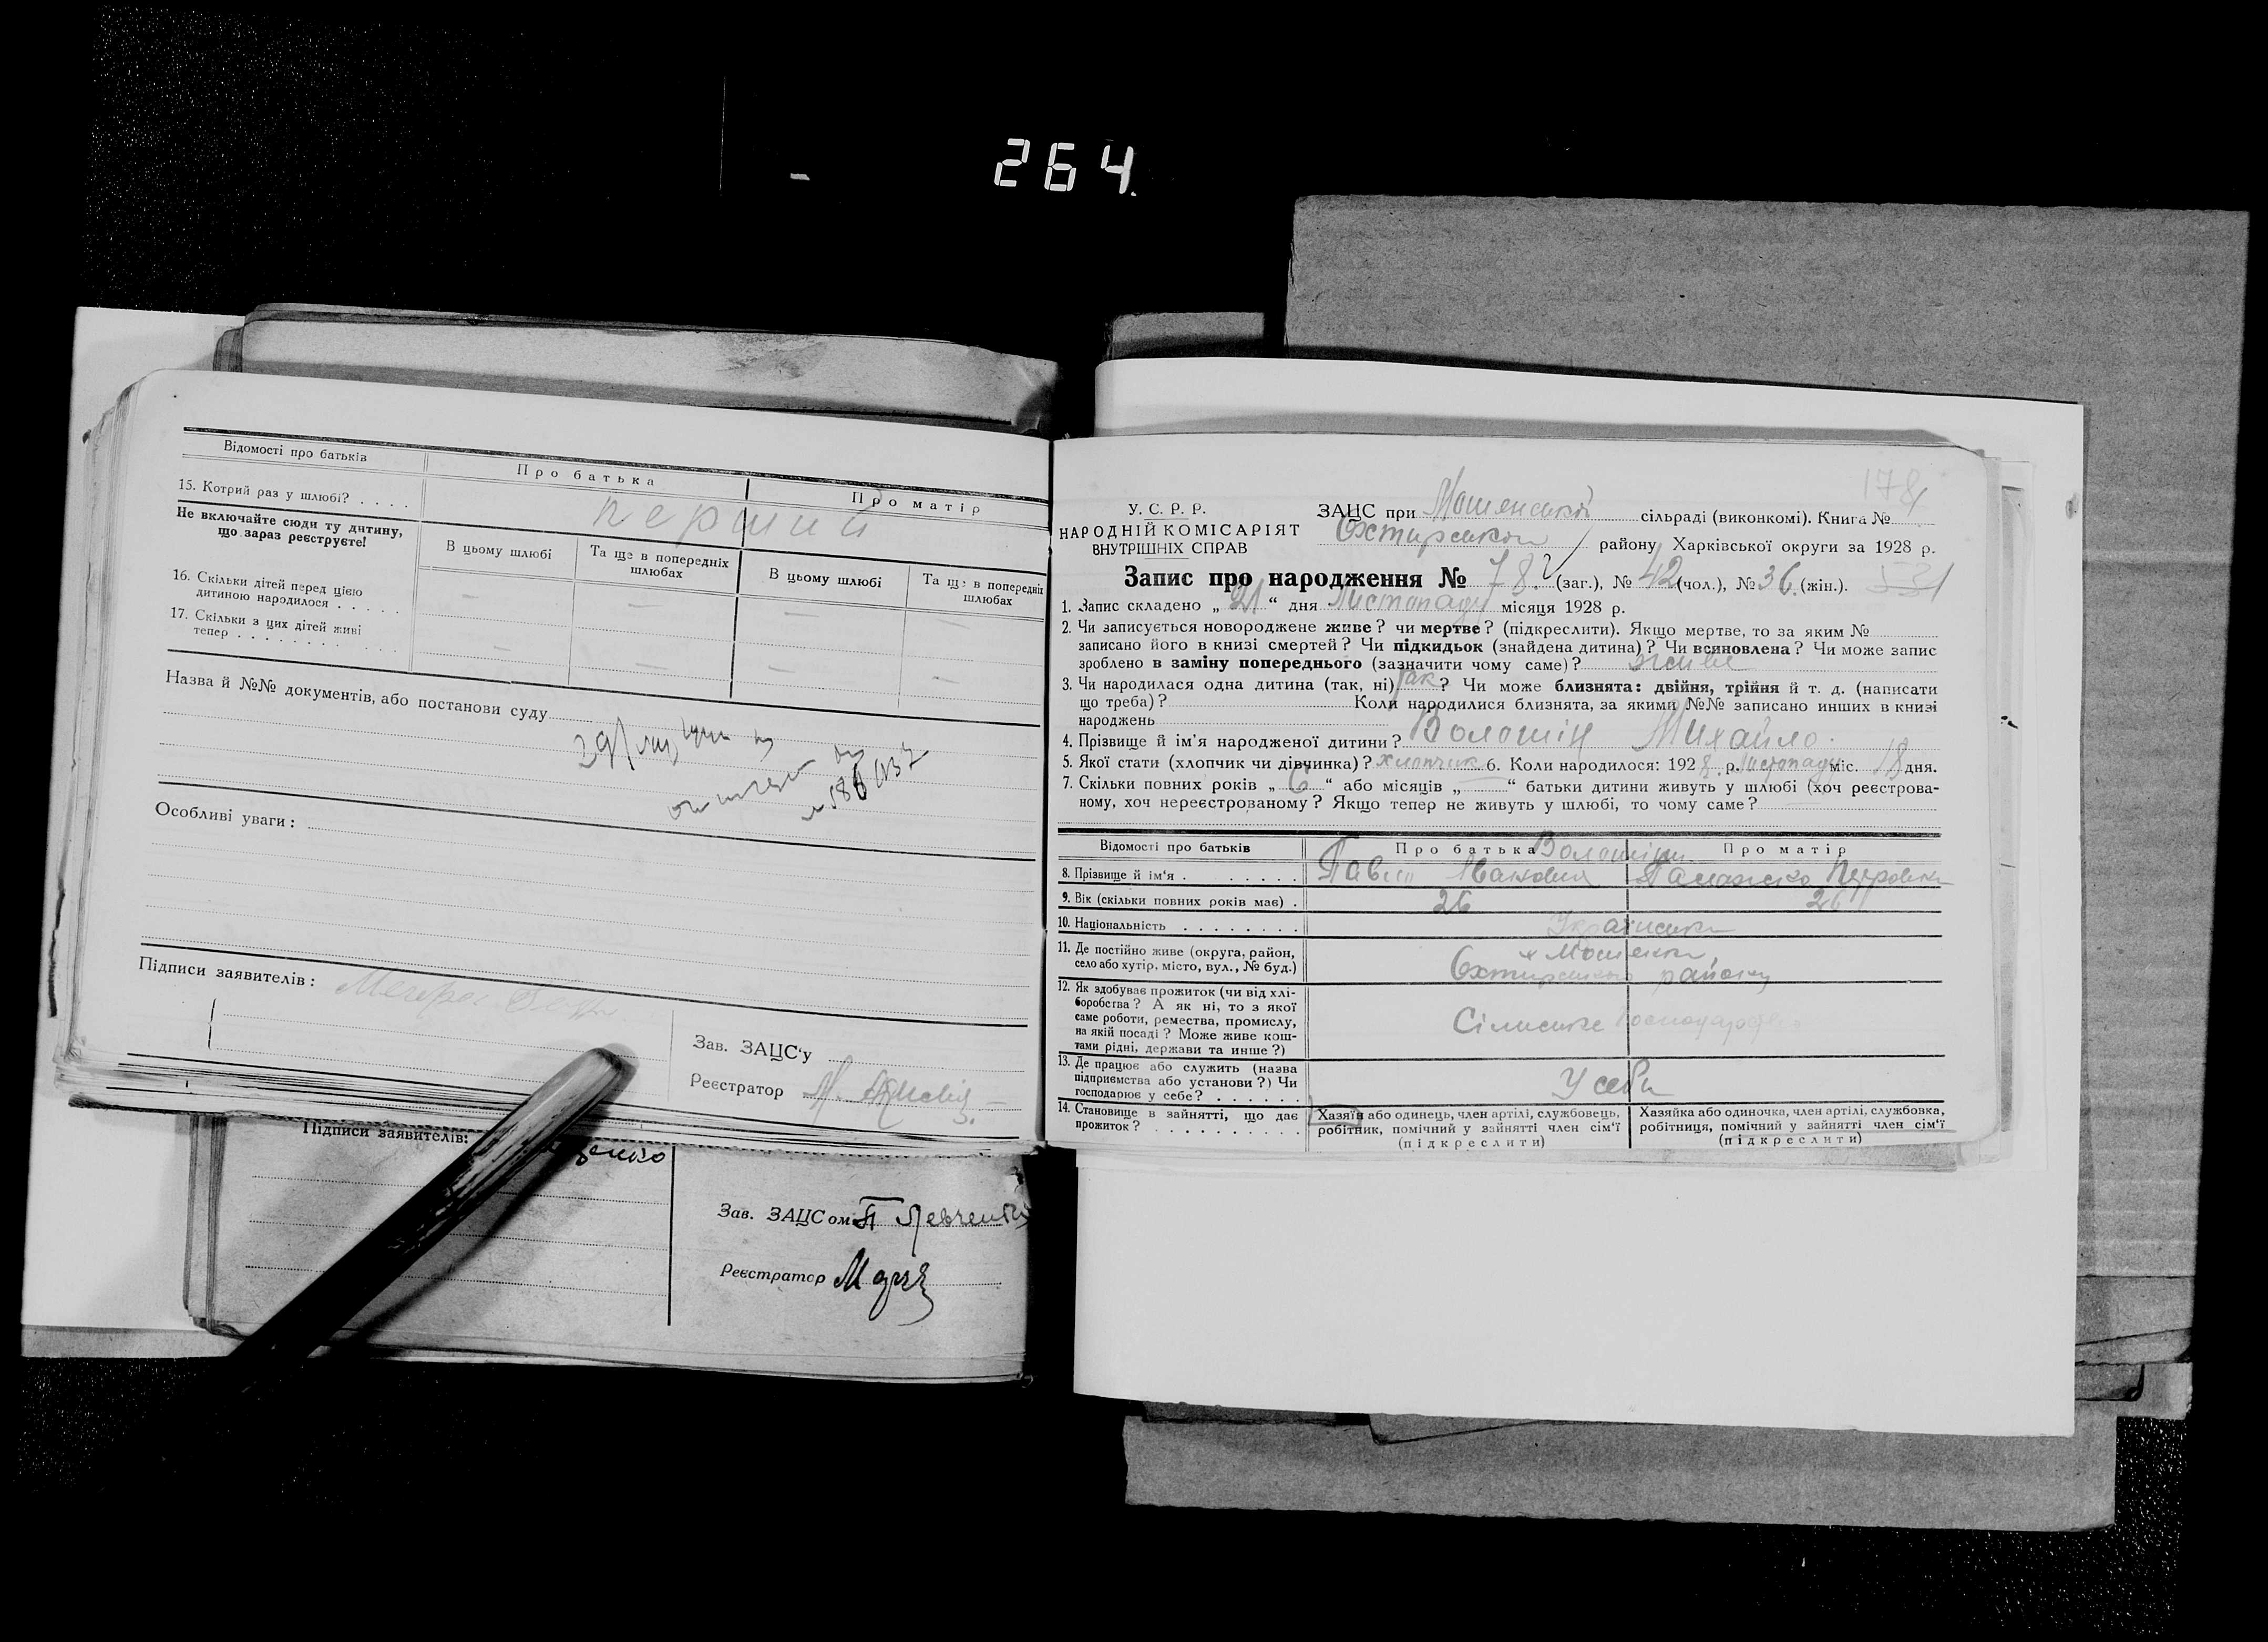 264.
Відомості про батьків
Про батька
Про матір
15. Котрий раз у шлюбі? . . . .
перший
Не включайте сюди ту дитину,
що зараз реєструєте!
В цьому шлюбі
Та ще в попередніх
шлюбах
В цьому шлюбі
Та ще в попередніх
шлюбах
16. Скільки дітей перед цією
дитиною народилося . . . . .
— — — —
17. Скільки з цих дітей живі
тепер . . . . . . . . . . .
— — — —
Назва й №№ документів, або постанови суду
Особливі уваги:
Підписи заявителів:
Зав. ЗАЦС'у
Реєстратор
Підписи заявителів:
Зав. ЗАЦСом П Левченко
Реєстратор
178
У. С. Р. Р.
НАРОДНІЙ КОМІСАРІЯТ
ВНУТРІШНІХ СПРАВ
ЗАЦС при Мошенській сільраді (виконкомі). Книга №
Охтирського району Харківської округи за 1928 р.
Запис про народження № 78 (заг.), № 42 (чол.), № 36 (жін.). 531
1. Запис складено „ 21 “ дня Листопаду місяця 1928 р.
2. Чи записується новороджене живе? чи мертве? (підкреслити). Якщо мертве, то за яким №
записано його в книзі смертей? Чи підкидьок (знайдена дитина)? Чи всиновлена? Чи може запис
зроблено в заміну попереднього (зазначити чому саме)? живе
3. Чи народилася одна дитина (так, ні) так? Чи може близнята: двійня, трійня й т. д. (написати
що треба)? Коли народилися близнята, за якими №№ записано инших в книзі
народжень
4. Прізвище й ім'я народженої дитини? Волошін Михайло.
5. Якої статі (хлопчик чи дівчинка)? хлопчик 6. Коли народилося: 1928 р. Листопаду міс. 18 дня.
7. Скільки повних років „ 6 “ або місяців „ “ батьки дитини живуть у шлюбі (хоч реєстрова-
ному, хоч нереєстрованому? Якщо тепер не живуть у шлюбі, то чому саме?
Відомості про батьків
Про батька
Про матір
Волошіни
8. Прізвище й ім'я . . . . . .
Павло Іванович
Петровна
9. Вік (скільки повних років має) .
26
26
10. Національність . . . . . . . .
Українська
11. Де постійно живе (округа, район,
село або хутір, місто, вул., № буд.)
х Мошенка,
Охтирського району
12. Як здобуває прожиток (чи від хлі-
боробства? А як ні, то з якої
саме роботи, ремества, промислу,
на якій посаді? Може живе кош-
тами рідні, держави та инше?)
Сільське господарство
13. Де працює або служить (назва
підприємства або установи?) Чи
господарює у себе? . . . . . .
У себе
14. Становище в зайнятті, що дає
прожиток? . . . . . . . . . .
Хазяїн або одинець, член артілі, службовець,
робітник, помічний у зайнятті член сім'ї
(підкреслити)
Хазяйка або одиночка, член артілі, службовка,
робітниця, помічний у зайнятті член сім'ї
(підкреслити)